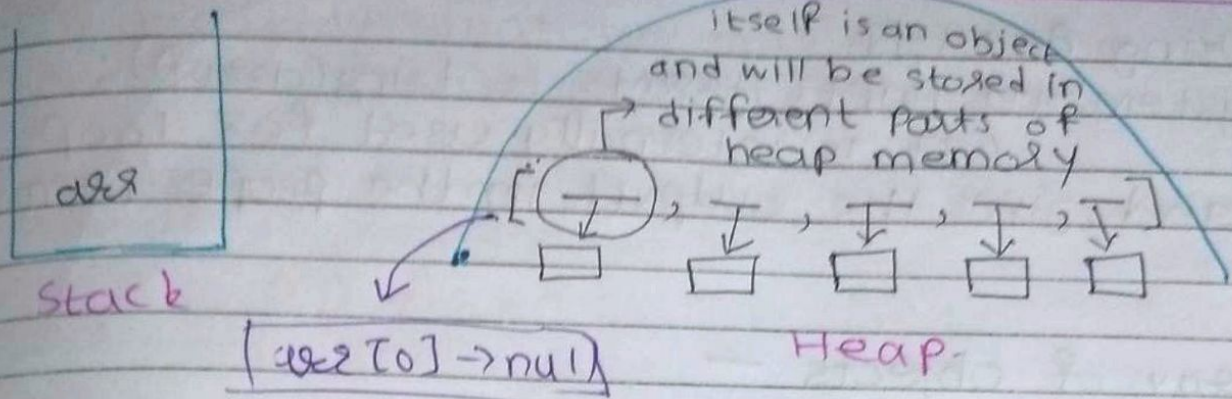 itself is an object
and will be stored in
different parts of
heap memory
arr
[ , , , , ]
Stack
arr[0] → null
Heap